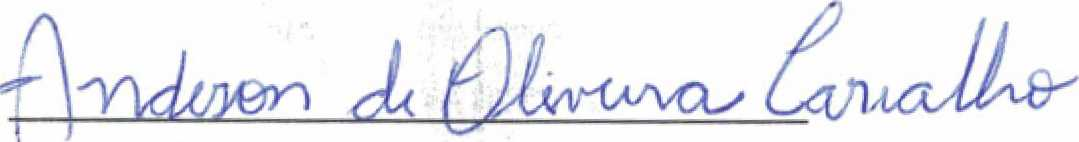 Anderson de Oliveira Carvalho